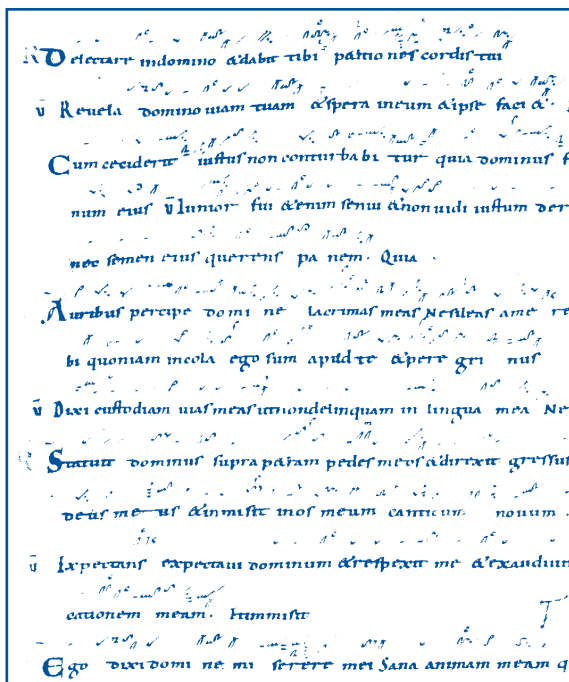 R Delectare indomino &dabit tibi p&itio nes cordis tui
v̄ Revela domino viam tuam &spera ineum &ipse faci &.
Cum ceciderit iustus non conturbabi tur quia dominus f
num eius v̄ Iunior fui &enim senui &non vidi iustum der
nec semen eius querens pa nem. Quia
Auribus percipe domi ne lacrimas meas Nesileas ame re
bi quoniam incola ego sum apud te &pere gri nus
v̄ Dixi custodiam vias meas utnondelinquam in lingua mea Ne
Statuit dominus supra p&ram pedes meos &direxit gressus
deus me us &inmisit inos meum canticum novum.
v̄ Expectans expectavi dominum &respexit me &exaudivit
cationem meam. Etinmisit
Ego dixi domi ne mi serere mei Sana animam meam q